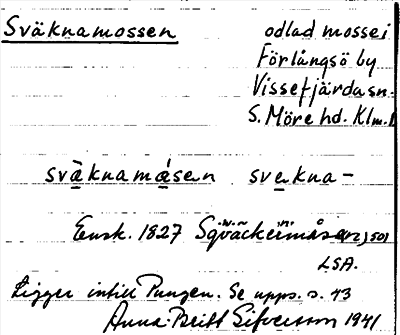 Sväknamossen odlad mosse i
Förlångsö by
Vissefjärda sn.
S. Möre hd. Klm.l
svàknamásen svekna-
Ensk. 1827 Sqväckeimåsa (12) 50)
LSA.
Ligger intill Pungen. Se upps. s. 43
Anna-Britt Sifversson 1941